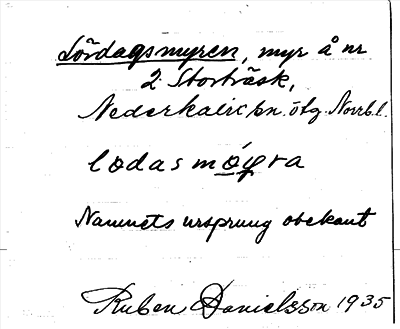 Lördagsmyren, myr å nr
2 Storträsk,
Nederkalix sn. ötg. Norrb. l.
lodasmøyra
Namnets ursprung obekant
Ruben Danielsson 1935